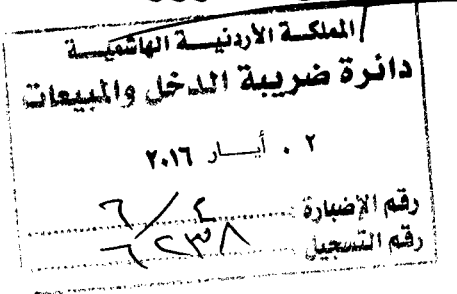 المملكة الأردنية الهاشمية
دائرة ضريبة الدخل والمبيعات
٠٢ أيار ٢٠١٦
رقم الإضبارة
رقم التسجيل ٦٢٣٨